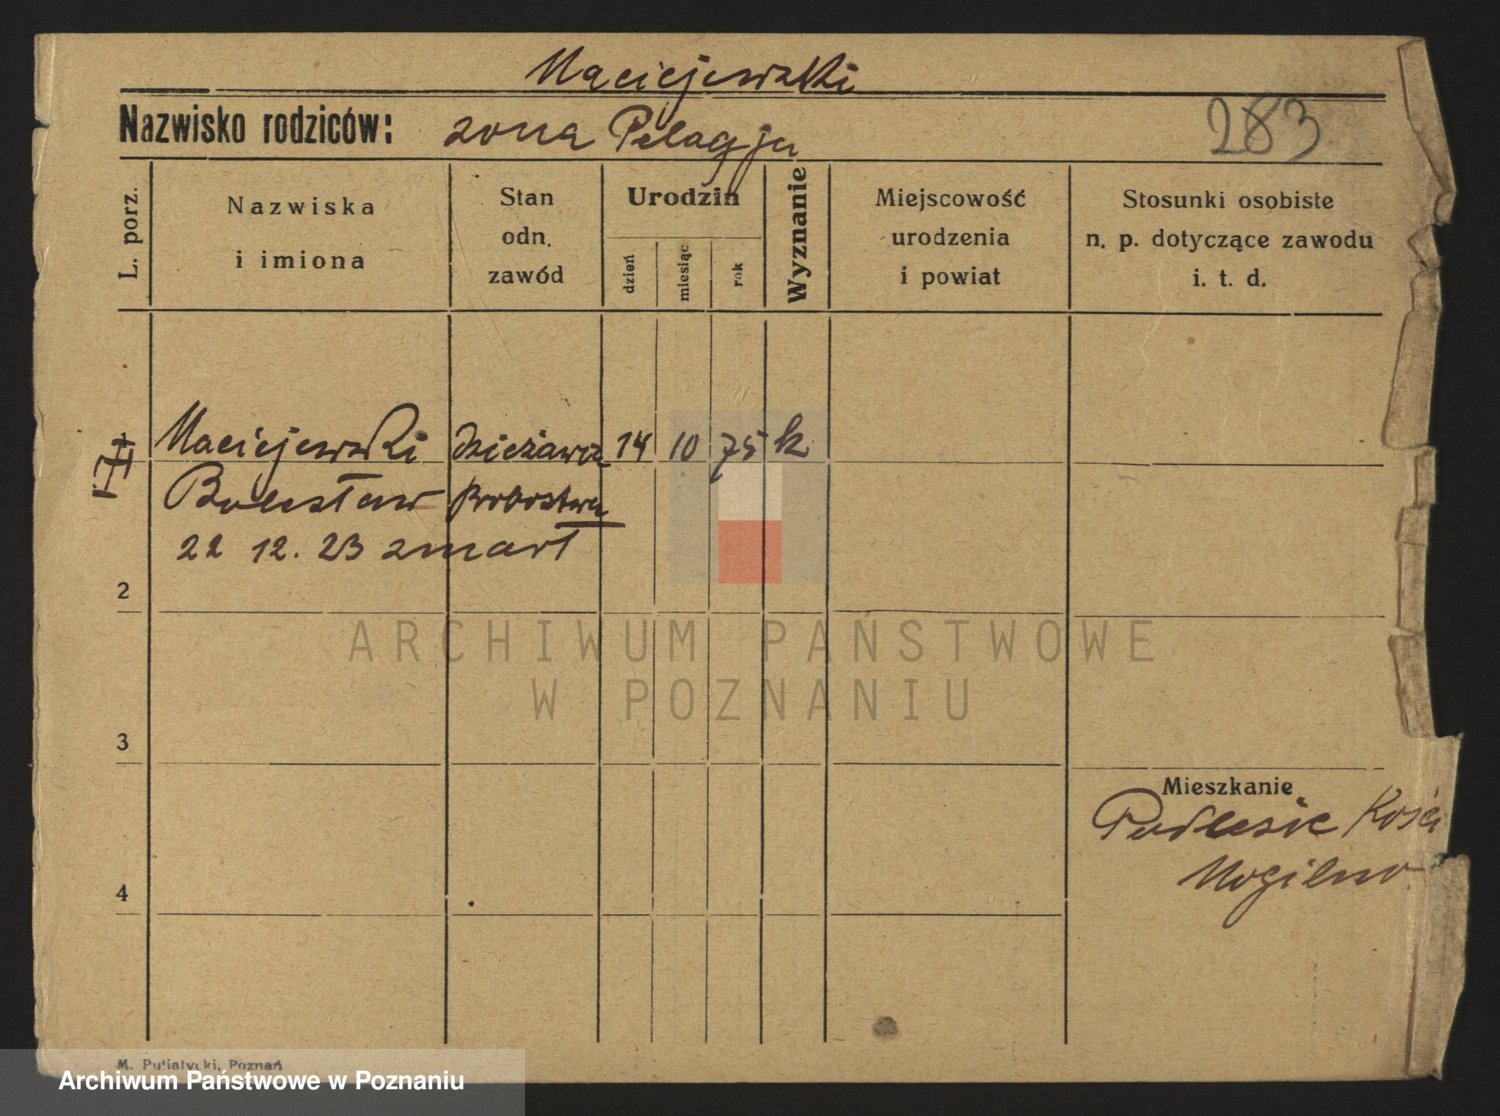 Maciejewski
Nazwisko rodziców: zona Pelagja
283
L. porz.
Nazwiska
i imiona
Stan
odn.
zawód
Urodzin
dzień
miesiąc
rok
Wyznanie
Miejscowość
urodzenia
i powiat
Stosunki osobiste
n. p. dotyczące zawodu
i. t. d.
Maciejewski dzieżawca 14 10 75 k
Bolesław Probostwa
22 12. 23 zmarł
2
ARCHIWUM PAŃSTWOWE
W POZNANIU
3
Mieszkanie
Podlesie Kości
Mogilno
4
M. Putiatycki, Poznań
Archiwum Państwowe w Poznaniu